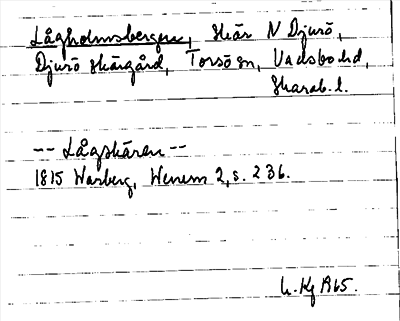 Lågholmsbergen, skär N Djurö,
Djurö skärgård, Torsö sn, Vadsbo hd,
Skarab. l.
-- Lågskären --
1815 Warberg, Wenern 2, s. 236.
L. Kg 1965.